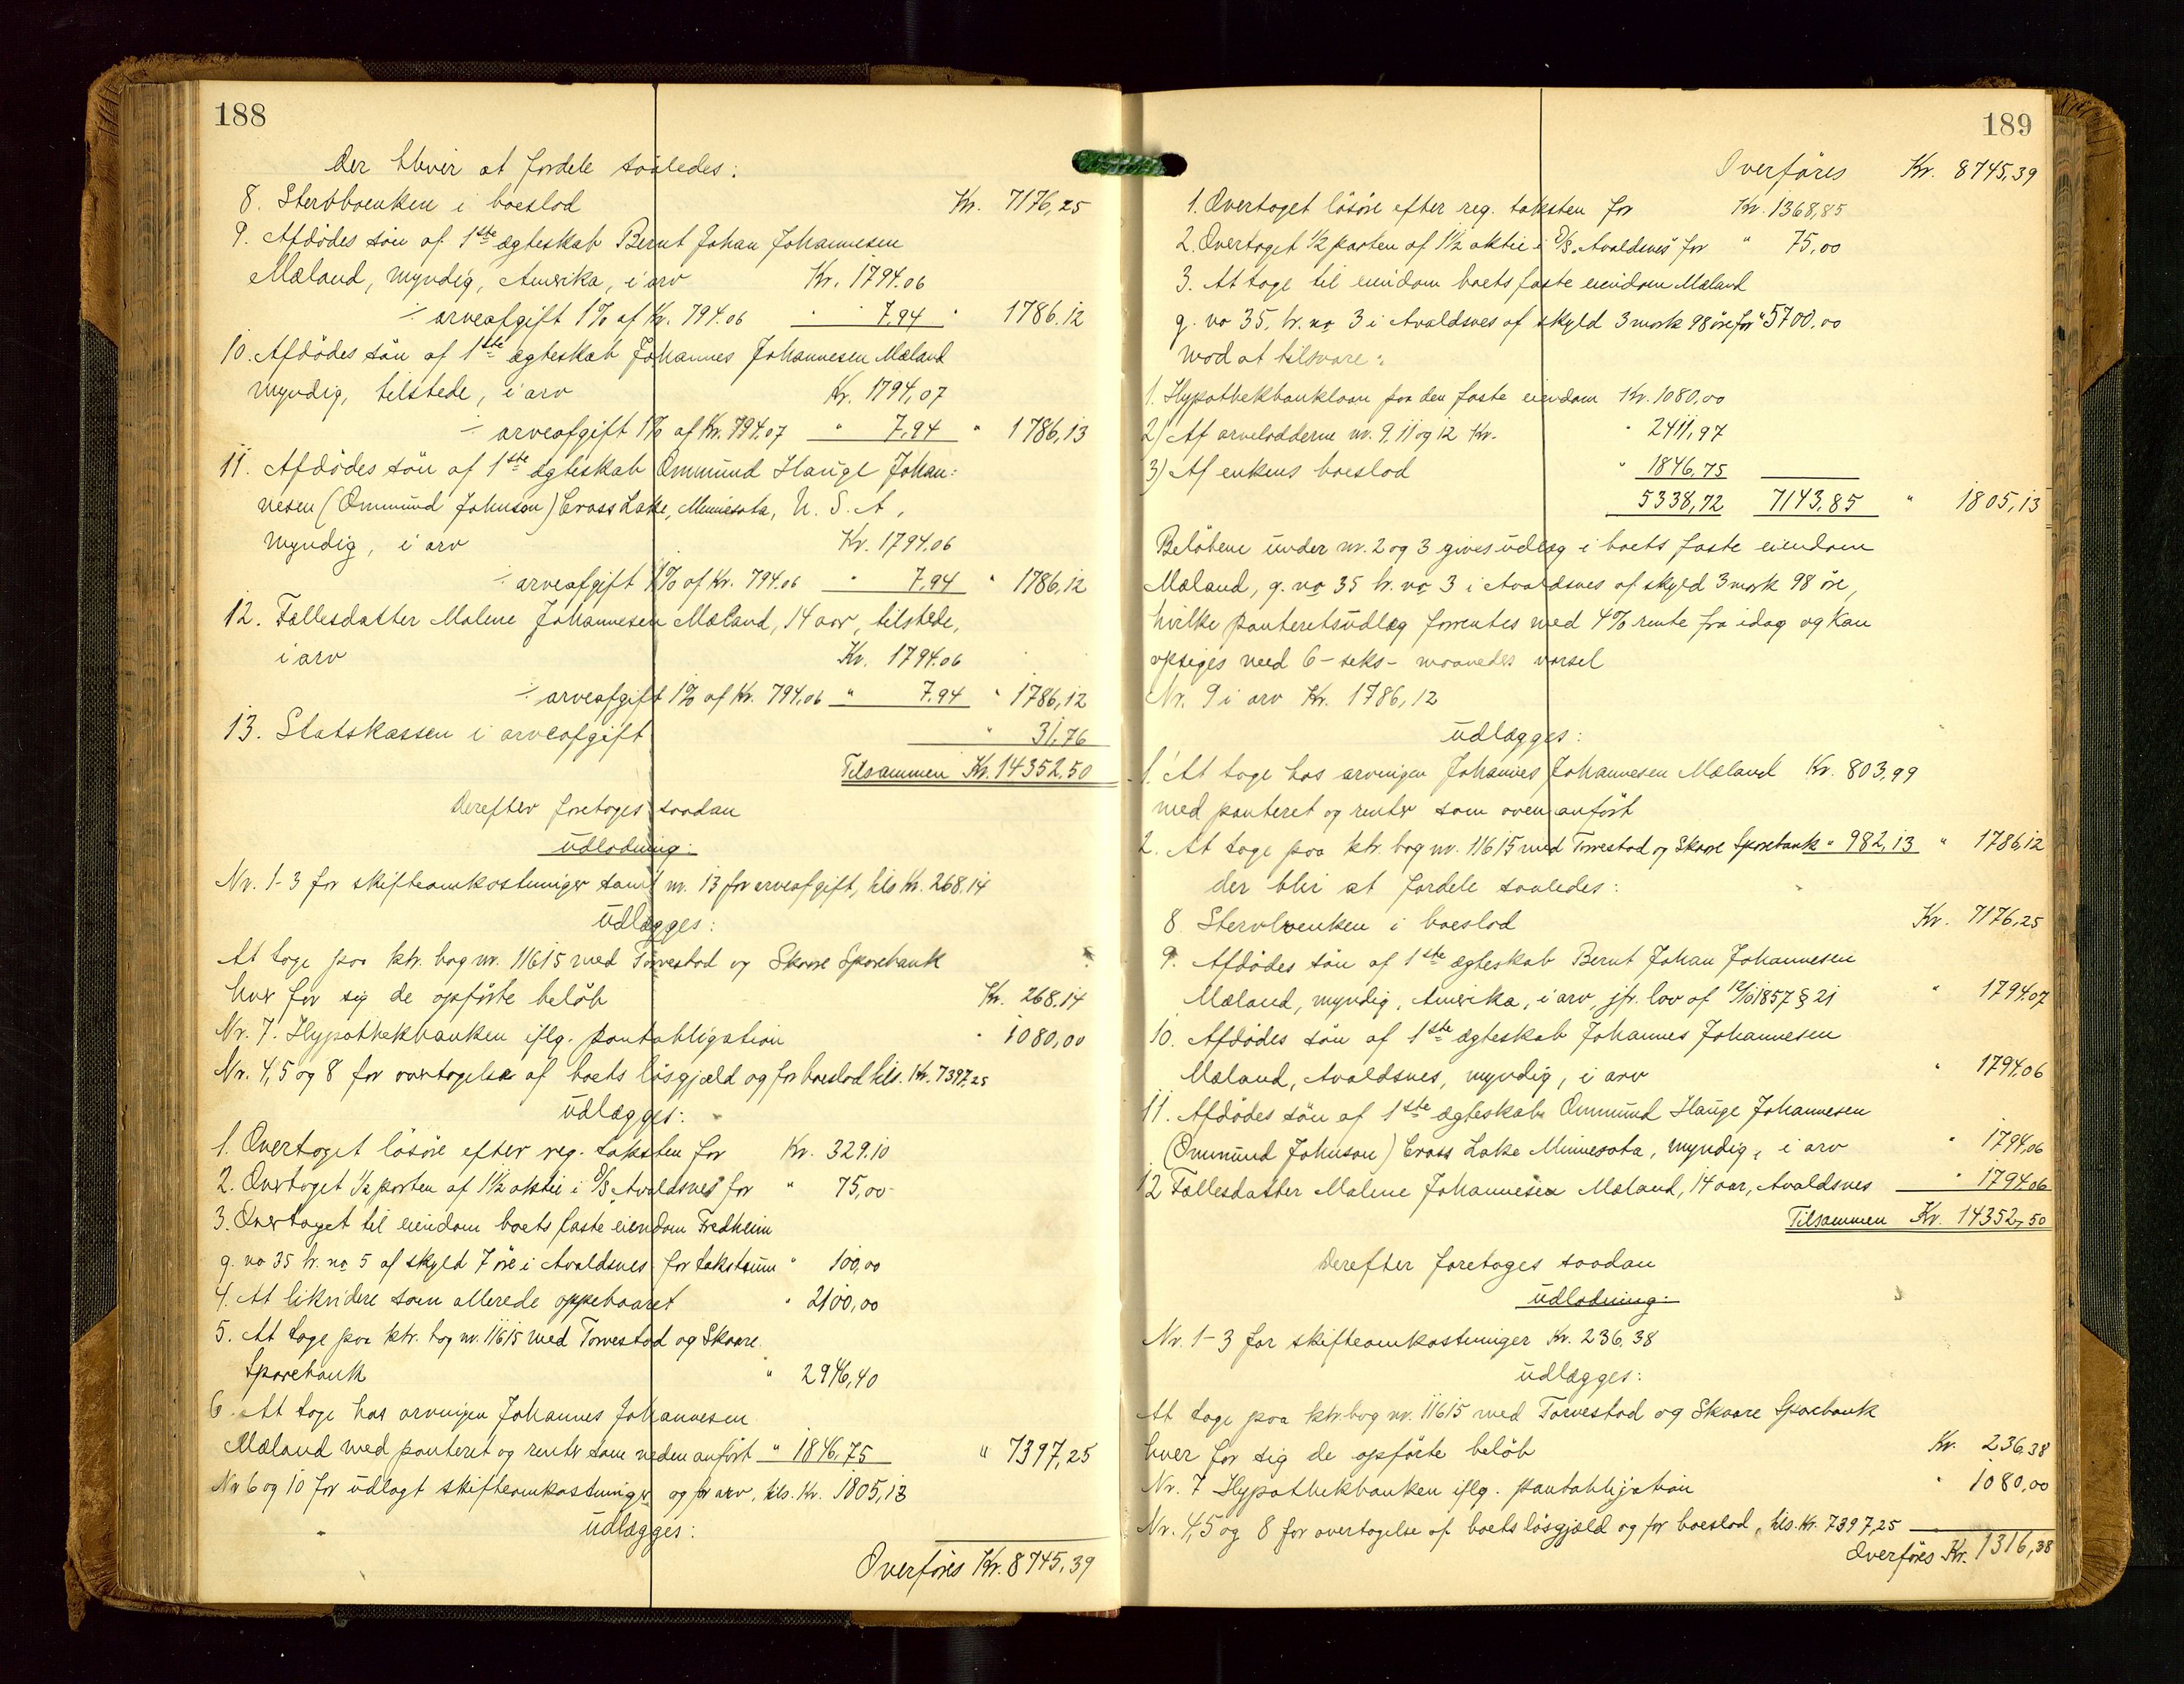 188
der bliver at fordele saaledes:
8. Stervboenken i boeslod Kr. 7176,25
9. Afdödes sön af 1ste ægteskab Bernt Johan Johannesen
Mæland, myndig, Amerika, i arv Kr. 1794.06
÷ arveafgift 1% af Kr. 794.06 " 7.94 " 1786.12
10. Afdödes sön af 1ste ægteskab Johannes Johannesen Mæland
myndig, tilstede, i arv Kr. 1794,07
÷ arveafgift 1% af Kr. 794.07 " 7,94 " 1786,13
11. Afdödes sön af 1ste ægteskab Ommund Hauge Johan:
nesen (Ommund Johnson) Cross Lake, Minnesota, U. S. A,
myndig, i arv Kr. 1794.06
÷ arveafgift 1% af Kr. 794.06 " 7,94 " 1786,12
12. Fællesdatter Malene Johannesen Mæland, 14 aar, tilstede,
i arv Kr. 1794.06
÷ arveafgift 1% af Kr. 794,06 " 7.94 " 1786,12
13. Statskassen i arveafgift " 31,76
Tilsammen Kr. 14352,50
Derefter foretoges saadan
udlodning:
Nr. 1-3 for skifteomkostninger samt nr. 13 for arveafgift, tils Kr. 268.14
udlægges:
At tage paa ktr. bog nr. 11615 med Torvestad og Skaare Sparebank
hver for sig de opförte belöb Kr. 268.14
Nr. 7. Hypothekbanken iflg. pantobligation " 1080,00
Nr. 4,5 og 8 for overtagelse af boets lösgjæld og for boeslod tils. Kr. 7397,25
udlægges:
1. Overtaget lösöre efter reg. taksten for Kr. 329.10
2. Overtaget 1/2 parten af 1 1/2 aktie i D/S "Avaldsnes" for " 75,00
3. Overtaget til eiendom boets faste eiendom Fredheim
g. no 35 br. no 5 af skyld 7 öre i Avaldsnes for takstsum " 100,00
4. At likvidere som allerede oppebaaret " 2100,00
5. At tage paa ktr. bog nr. 11615 med Torvestad og Skaare
Sparebank " 2946,40
6. At tage hos arvingen Johannes Johannesen
Mæland med panteret og renter som neden anfört " 1846,75 " 7397,25
Nr 6 og 10 for udlagt skifteomkostninger og for arv, tils. Kr. 1805,13
udlægges:
Overföres Kr. 8745,39
189
Overföres Kr. 8745,39
1. Overtaget lösöre efter reg. taksten for Kr. 1368,85
2. Overtaget 1/2 parten af 1 1/2 aktie i D/S "Avaldsnes" for " 75,00
3. At tage til eiendom boets faste eiendom Mæland
g. no 35, br. no 3 i Avaldsnes af skyld 3 mark 98 öre for " 5700,00
mod at tilsvare:
1. Hypothekbanklaan paa den faste eiendom Kr. 1080,00
2) Af arvelodderne nr. 9, 11 og 12 Kr. " 2411,97
3) Af enkens boeslod " 1846,75
5338,72 7143,85 " 1805,13
Belöbene under nr. 2 og 3 gives udlæg i boets faste eiendom
Mæland, g. no 35 br. no 3 i Avaldsnes af skyld 3 mark 98 öre,
hvilke panteretsudlæg forrentes med 4% rente fra idag og kan
opsiges med 6 - seks - maaneders varsel
Nr. 9 i arv Kr. 1786,12
udlægges:
1. At tage hos arvingen Johannes Johannesen Mæland Kr. 803,99
med panteret og renter som oven anfört
2. At tage paa ktr. bog nr. 11615 med Torvestad og Skaare Sparebank " 982,13 " 1786,12
der blir at fordele saaledes:
8. Stervboenken i boeslod Kr. 7176,25
9. Afdödes sön af 1ste ægteskab Bernt Johan Johannesen
Mæland, myndig, Amerika, i arv, jfr. lov af 12/10 1857 § 21 " 1794.07
10. Afdödes sön af 1ste ægteskab Johannes Johannesen
Mæland, Avaldsnes, myndig, i arv " 1794.06
11. Afdödes sön af 1ste ægteskab Ommund Hauge Johannesen
(Ommund Johnson) Cross Lake Minnesota, myndig, i arv " 1794,06
12 Fællesdatter Malene Johannesen Mæland, 14 aar, Avaldsnes " 1794.06
Tilsammen Kr. 14352,50
Derefter foretoges saadan
udlodning:
Nr. 1-3 for skifteomkostninger Kr. 236,38
udlægges:
At tage paa ktr. bog nr. 11615 med Torvestad og Skaare Sparebank
hver for sig de opförte belöb Kr. 236,38
Nr. 7 Hypothekbanken iflg. pantobligation " 1080,00
Nr. 4,5 og 8 for overtagelse af boets lösgjæld og for boeslod, tils. Kr. 7397,25
Overföres Kr. 1316,38